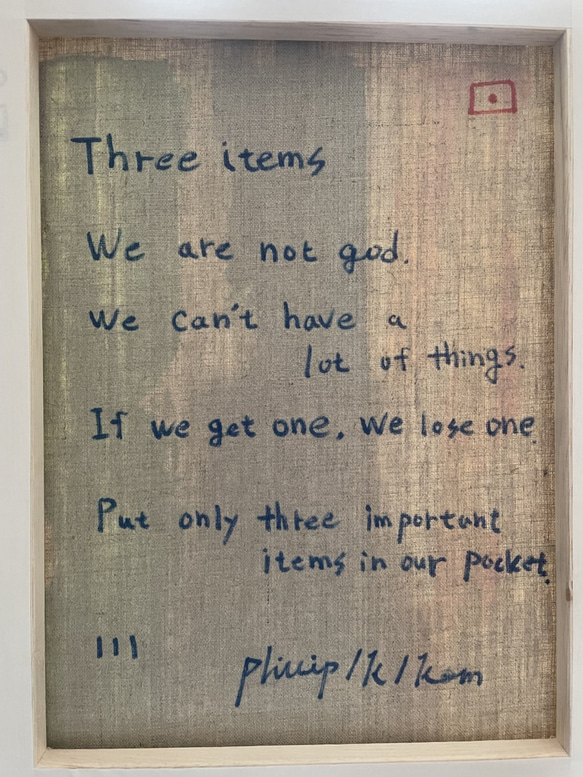 Three items
We are not god.
We can't have a
lot of things.
If we get one, we lose one.
Put only three important
items in our pocket.
III
/k/kom